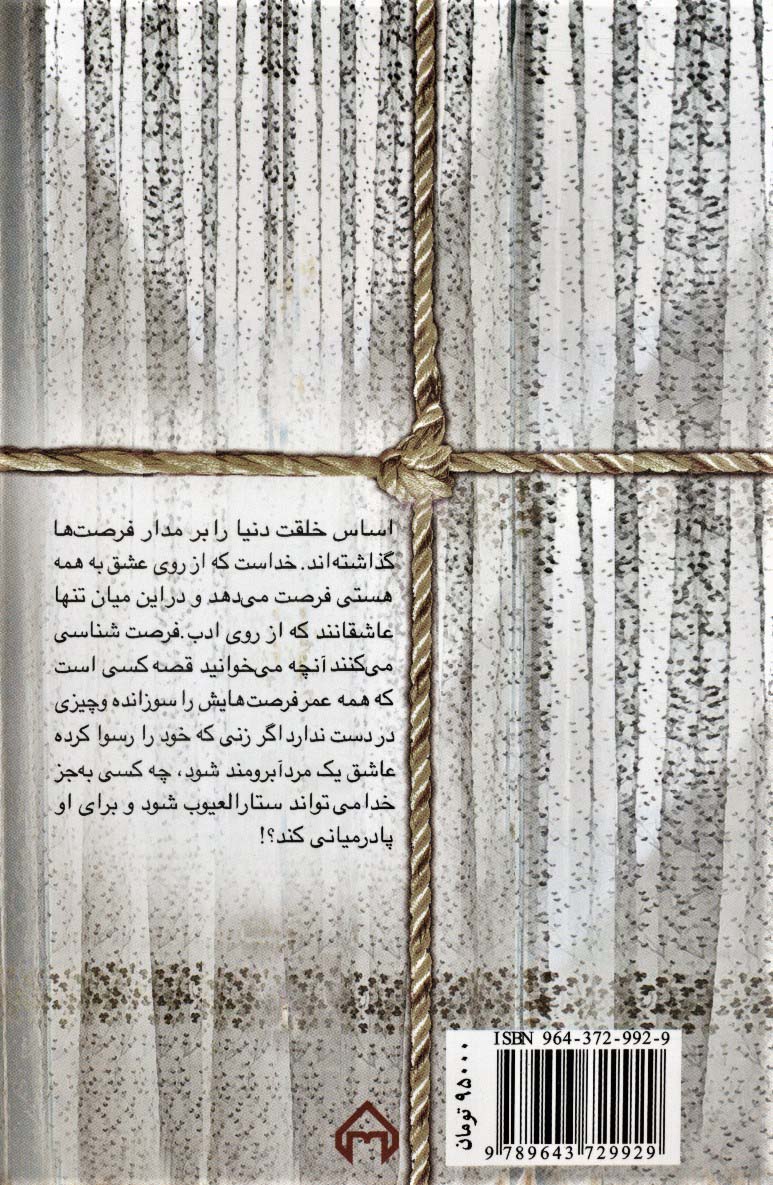 اساس خلقت دنیا را بر مدار فرصت‌ها
گذاشته‌اند. خداست که از روی عشق به همه
هستی فرصت می‌دهد و در این میان تنها
عاشقانند که از روی ادب.فرصت شناسی
می‌کنند آنچه می‌خوانید قصه کسی است
که همه عمر فرصت‌هایش را سوزانده وچیزی
در دست ندارد اگر زنی که خود را رسوا کرده
عاشق یک مرد آبرومند شود، چه کسی به‌جز
خدا می‌تواند ستارالعیوب شود و برای او
پادرمیانی کند؟!
ISBN 964-372-992-9
۹۵۰۰۰ تومان
9 789643 729929